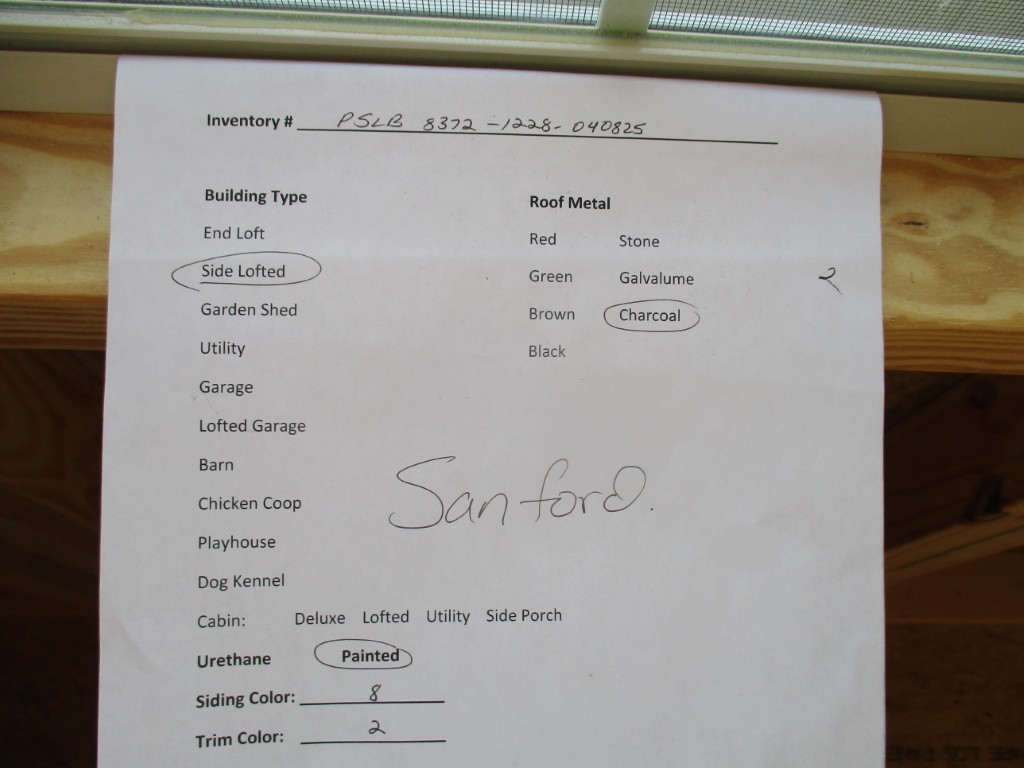 Inventory # PSLB 8372-1228-040825
Building Type Roof Metal
End Loft Red Stone
Side Lofted Green Galvalume 2
Garden Shed Brown Charcoal
Utility Black
Garage
Lofted Garage
Barn
Chicken Coop Sanford.
Playhouse
Dog Kennel
Cabin: Deluxe Lofted Utility Side Porch
Urethane Painted
Siding Color: 8
Trim Color: 2